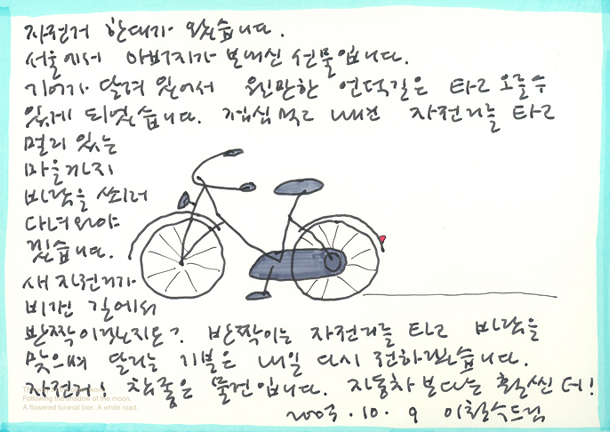 자전거 한대가 왔습니다.
서울에서 아버지가 보내신 선물입니다.
기어가 달려 있어서 웬만한 언덕길은 타고 오를수
있게 되었습니다. 점심먹고 내겐 자전거를 타고
멀리 있는
마을까지
바람을 쐬러
다녀와야
겠습니다.
새 자전거가
비깬 길에서
반짝이겠지요? 반짝이는 자전거를 타고 바람을
맞으며 달리는 기분은 내일 다시 전하겠습니다.
자전거! 참 좋은 물건입니다. 자동차 보다는 훨씬 더!
Following the shadow of the moon,
A flowered funeral bier. A white road.
2003.10.9 이철수드림